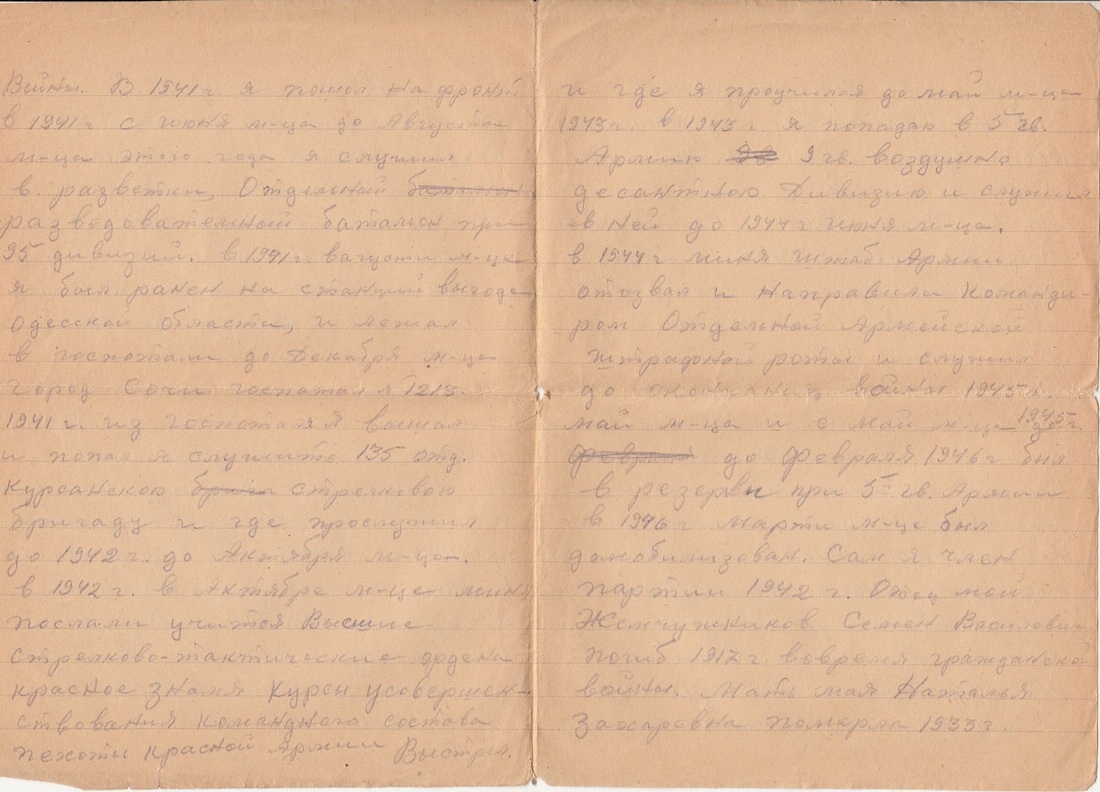 Войны. В 1941 г. я пошол на фронт
в 1941 г с июня м-ца до Августа
м-ца этого года я служил
в разветки, Отдельный батальон
разведовательный батальон при
95 дивизий. в 1941 г. вагусти м-це
я был ранен на станций выгода
Одесской области, и лежал
в госпотали до Декабря м-ца
город Сочи госпотал 1213.
1941 г. из госпоталя вышал
и попал я служить 135 отд.
Курсанскою брига стрелковою
бригаду и где прослужил
до 1942 г. до Актября м-ца.
в 1942 г. в Актябре м-це миня
послали учится Высшие
стрелково-тактические ордена
красное знамя курсы усовершен-
ствования командного состава
пехоты красной Армии Выстрел.
и где я проучился до май м-ца
1943 г. в 1943 г. я попадаю в 5 гв.
Армию 9 гв. воздушно
десантною Дивизию и служил
в ней до 1944 г июня м-ца.
в 1944 г миня штаб Армии
отозвал и направили Команди-
ром Отдельной Армейской
штрафной роты и служил
до окончания войны 1945 г.
май м-ца и с май м-ца 1945 г.
февраля до Февраля 1946 г был
в резерви при 5 гв. Армии
в 1946 г Марти м-це был
домобилизован. Сам я член
партии 1942 г. Отец мой
Жемчужников Семен Васильевич
погиб 1917 г. вовремя гражданской
войны. Мать моя Наталья
Захаровна померла 1933 г.